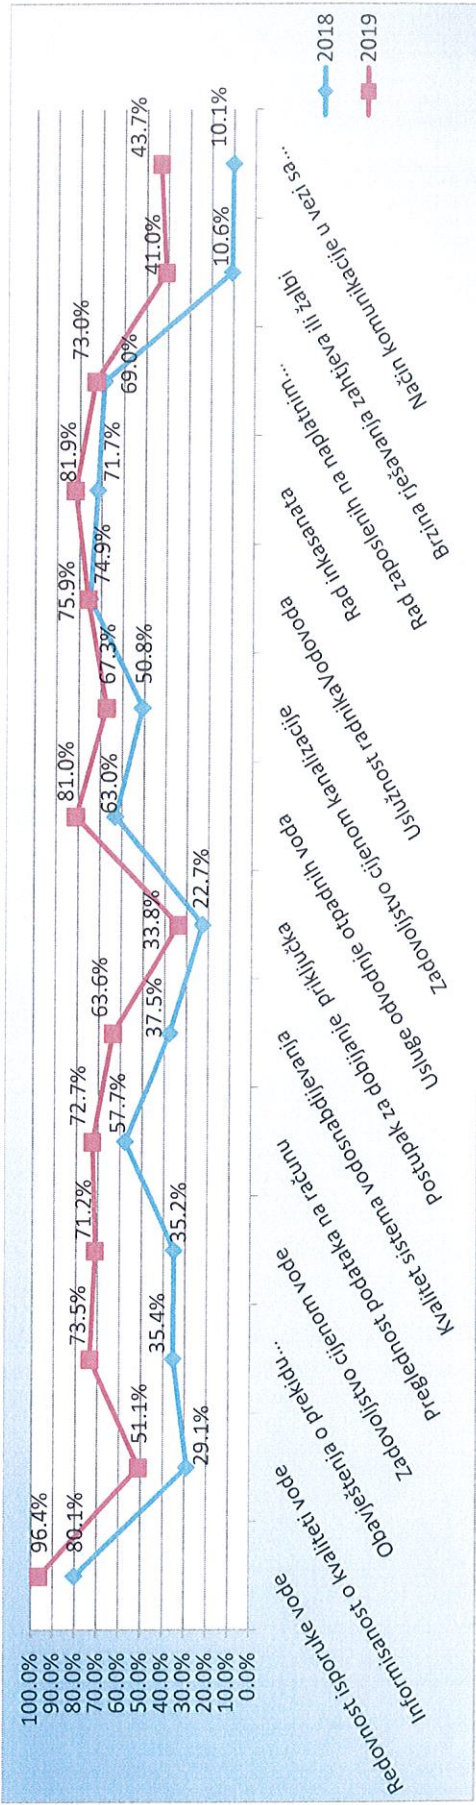 100.0%
90.0%
80.0%
70.0%
60.0%
50.0%
40.0%
30.0%
20.0%
10.0%
0.0%
96.4%
80.1%
51.1%
29.1%
73.5%
35.4%
71.2%
35.2%
72.7%
57.7%
63.6%
37.5%
33.8%
22.7%
81.0%
63.0%
67.3%
50.8%
75.9%
74.9%
81.9%
71.7%
73.0%
69.0%
41.0%
10.6%
43.7%
10.1%
2018
2019
Redovnost isporuke vode
Informisanost o kvaliteti vode
Obavještenja o prekidu...
Zadovoljstvo cijenom vode
Preglednost podataka na računu
Kvalitet sistema vodosnabdijevanja
Postupak za dobijanje priključka
Usluge odvodnje otpadnih voda
Zadovoljstvo cijenom kanalizacije
Uslužnost radnikaVodovoda
Rad inkasanata
Rad zaposlenih na naplatnim...
Brzina rješavanja zahtjeva ili žalbi
Način komunikacije u vezi sa...